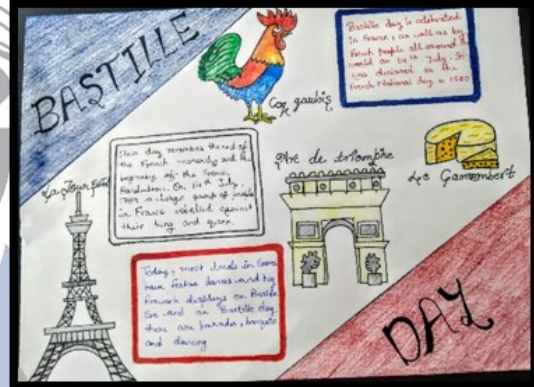 BASTILLE
Coq gaulois
Bastille day is celebrated
in France, as well as by
French people all around the
world on 14th July. It
was declared as the
French National day in 1880
This day remembers the end of
the French monarchy and the
beginning of the French
Revolution. On 14th July,
1789 a large group of people
in France rebelled against
their king and queen.
La Tour Eiffel
Arc de triomphe
Le Camembert
Today, most locals in
have festive dances and big
firework displays on Bastille
Eve and on Bastille day
there are parades, banquets
and dancing
DAY